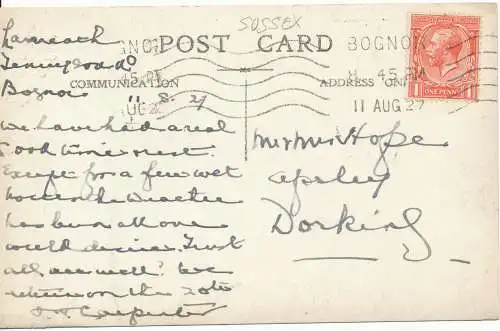 SUSSEX
POST CARD
COMMUNICATION
ADDRESS ONLY
BOGNOR
45 PM
11 AUG 27
ONE PENNY
Bognor
11 8. 27
We have had a real
good time & rest.
Except for a few wet
hours the weather
has been all one
could desire. Trust
all are well. We
return on the 20th
Carpenter
Mr & Mrs Hope
Apsley
Dorking